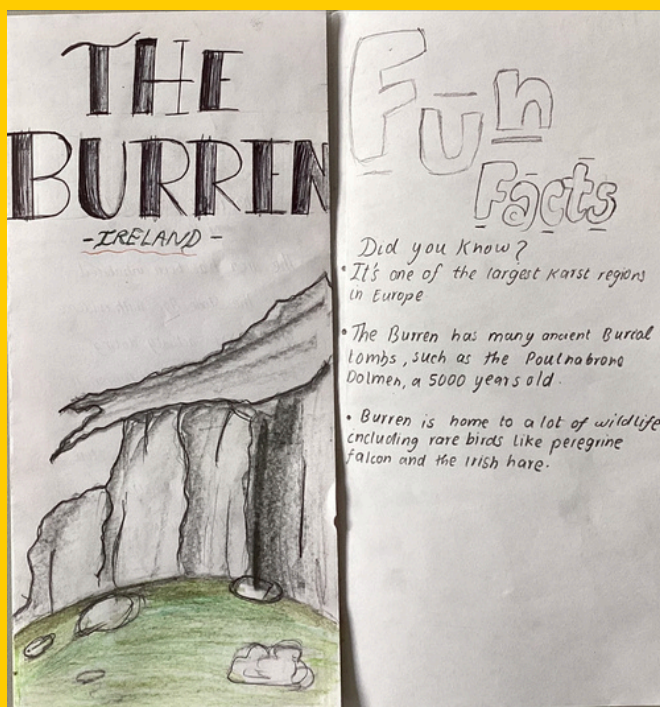 THE
BURREN
-IRELAND-
Fun
Facts
Did you know?
• It's one of the largest karst regions
in Europe
• The Burren has many ancient Burial
tombs, such as the Poulnabrone
Dolmen, a 5000 years old.
• Burren is home to a lot of wildlife
including rare birds like peregrine
falcon and the Irish hare.